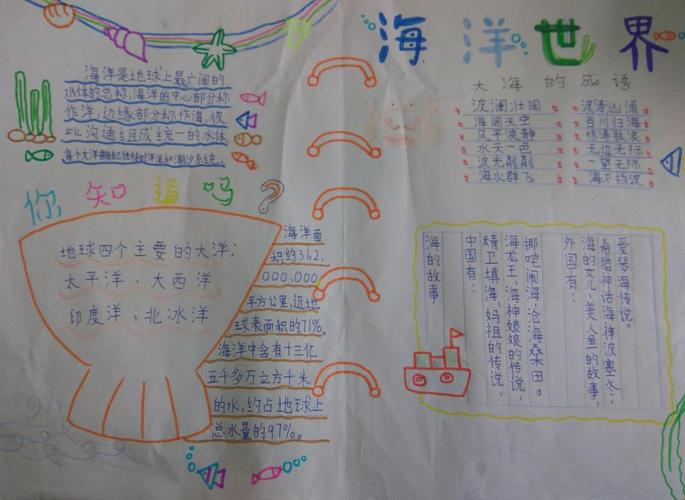 海洋世界
海洋是地球上最广阔的
水体的总称，海洋的中心部分称
作洋，边缘部分称作海，彼
此沟通组成统一的水体
你知道吗？
地球四个主要的大洋：
太平洋、大西洋
印度洋、北冰洋
海洋面
积约362,
000,000
平方公里，近地
球表面积的71%。
海洋中含有十三亿
五千多万立方千米
的水，约占地球上
总水量的97%。
大海的成语
波澜壮阔
海阔天空
风平浪静
水天一色
波光粼粼
海水群飞
波涛汹涌
百川归海
惊涛骇浪
无边无际
一望无际
海不扬波
海的故事
中国有：
精卫填海，妈祖的传说，
海龙王，海神娘娘的传说，
挪吒闹海，沧海桑田。
外国有：
海的女儿，美人鱼的故事，
希腊神话海神波塞冬，
爱琴海传说。